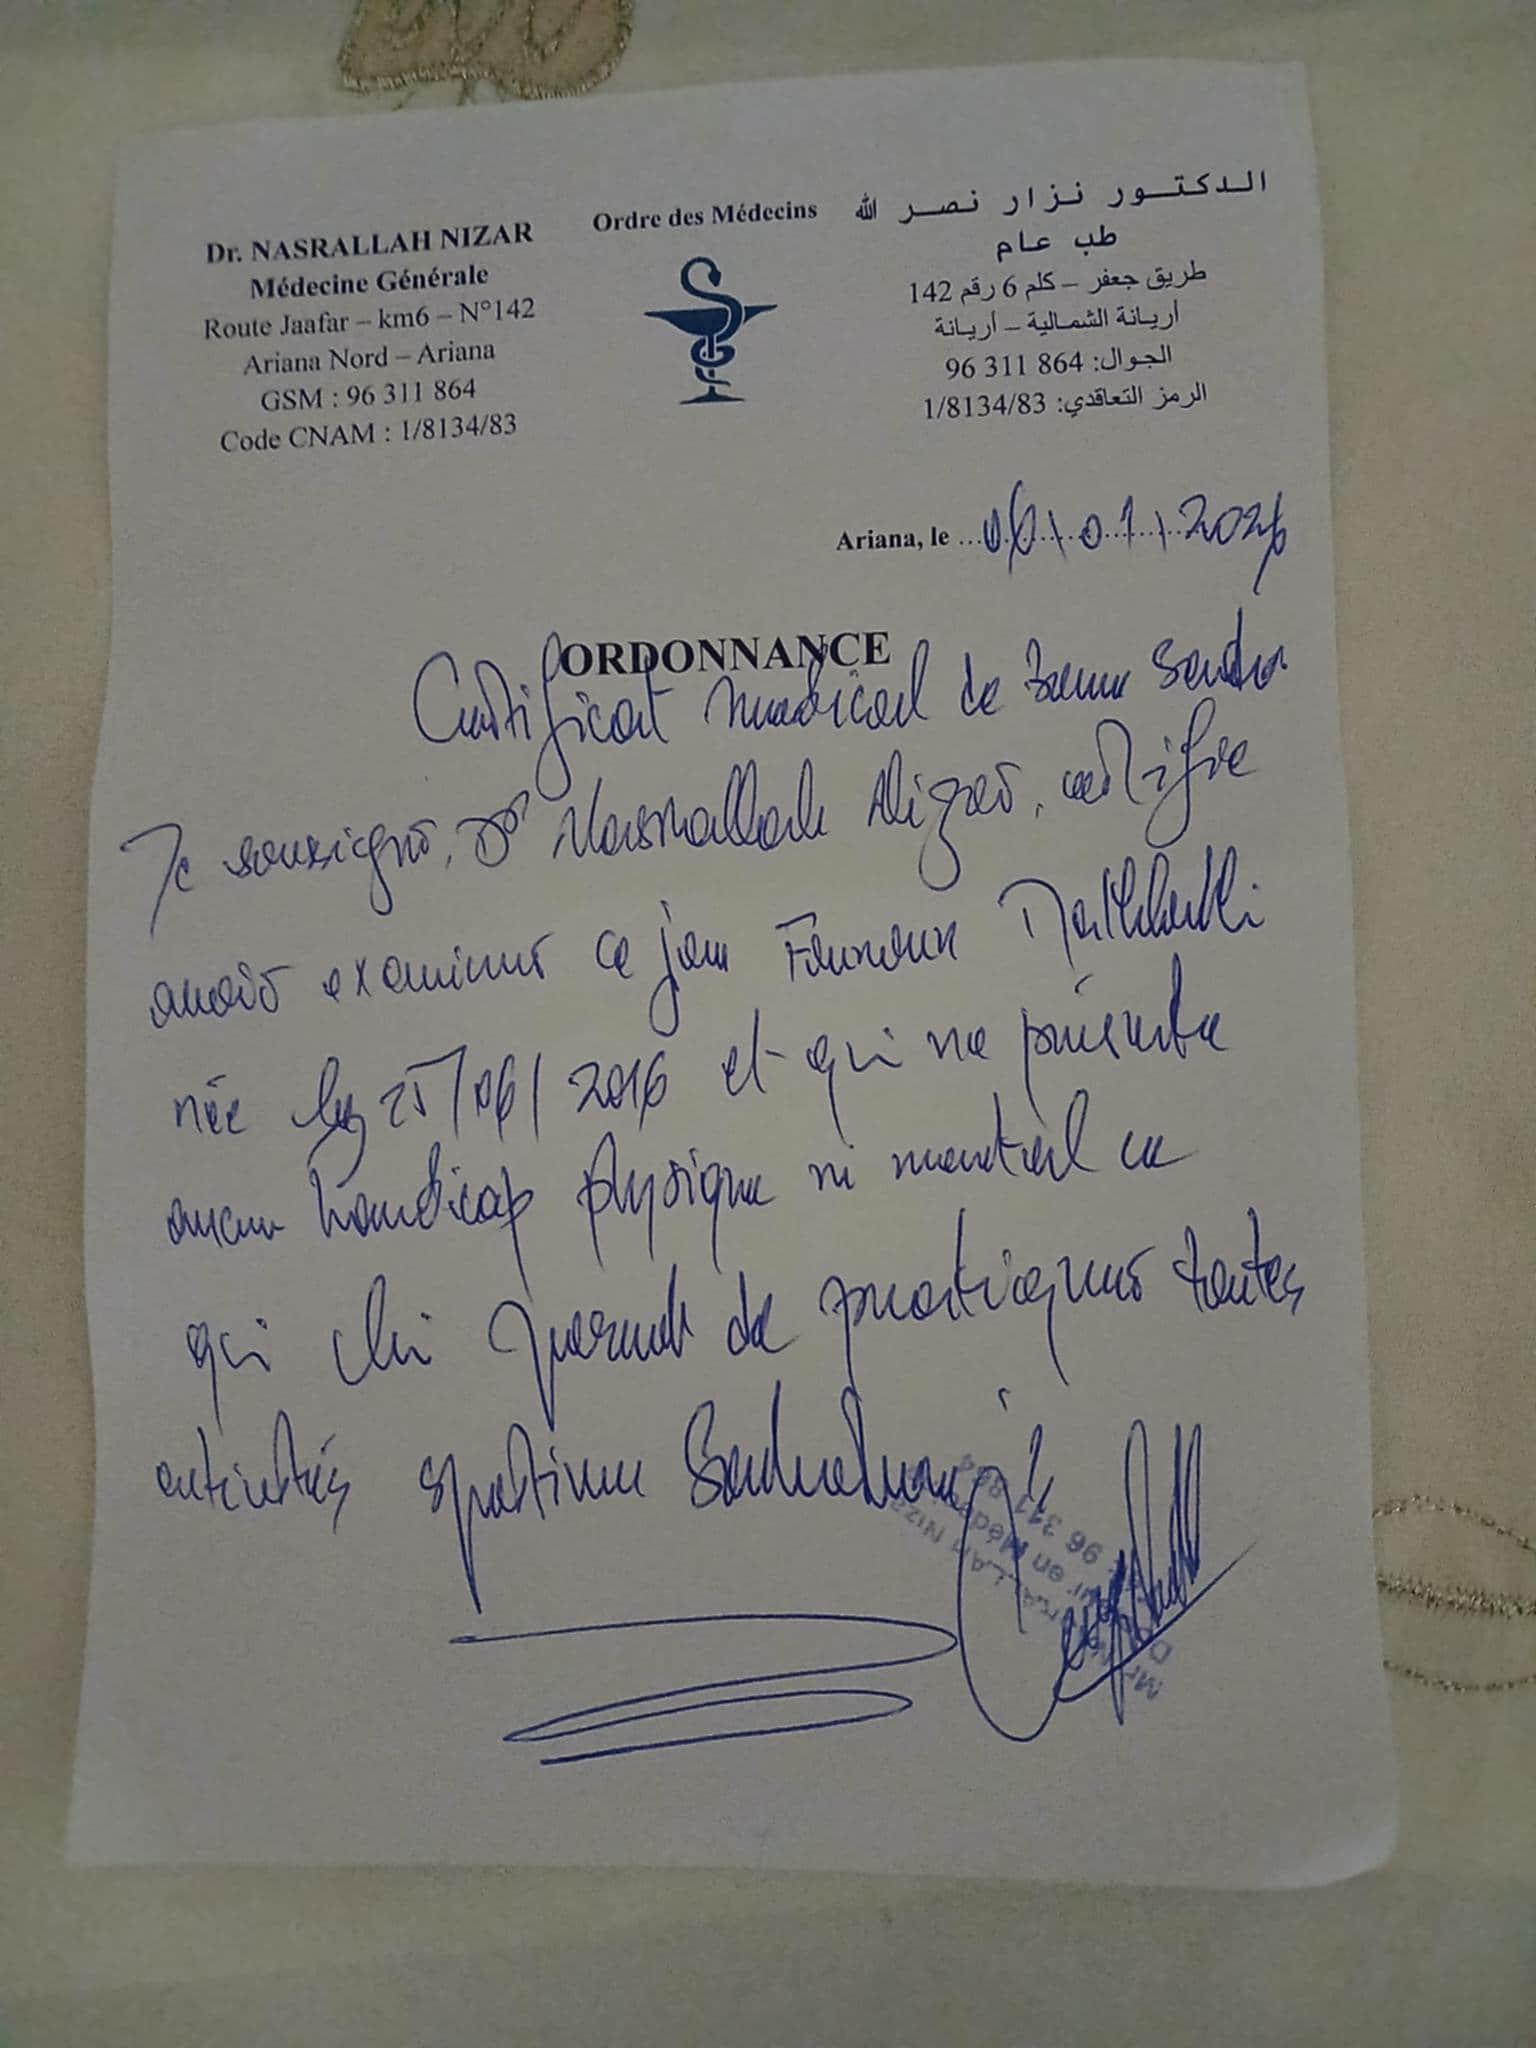 Dr. NASRALLAH NIZAR
Médecine Générale
Route Jaafar – km6 – N°142
Ariana Nord – Ariana
GSM : 96 311 864
Code CNAM : 1/8134/83
Ordre des Médecins
الدكتور نزار نصر الله
طب عام
طريق جعفر – كلم 6 رقم 142
أريانة الشمالية – أريانة
الجوال: 864 311 96
الرمز التعاقدي: 1/8134/83
Ariana, le 06/01/2026
ORDONNANCE
Certificat médical de bonne Santé
Je soussigné, Dr Nasrallah Nizar, certifie
avoir examiné ce jour
née le 25/06/2016 et qui ne présente
aucun handicap physique ni mental ce
qui lui permet de pratiquer toutes
activités sportives